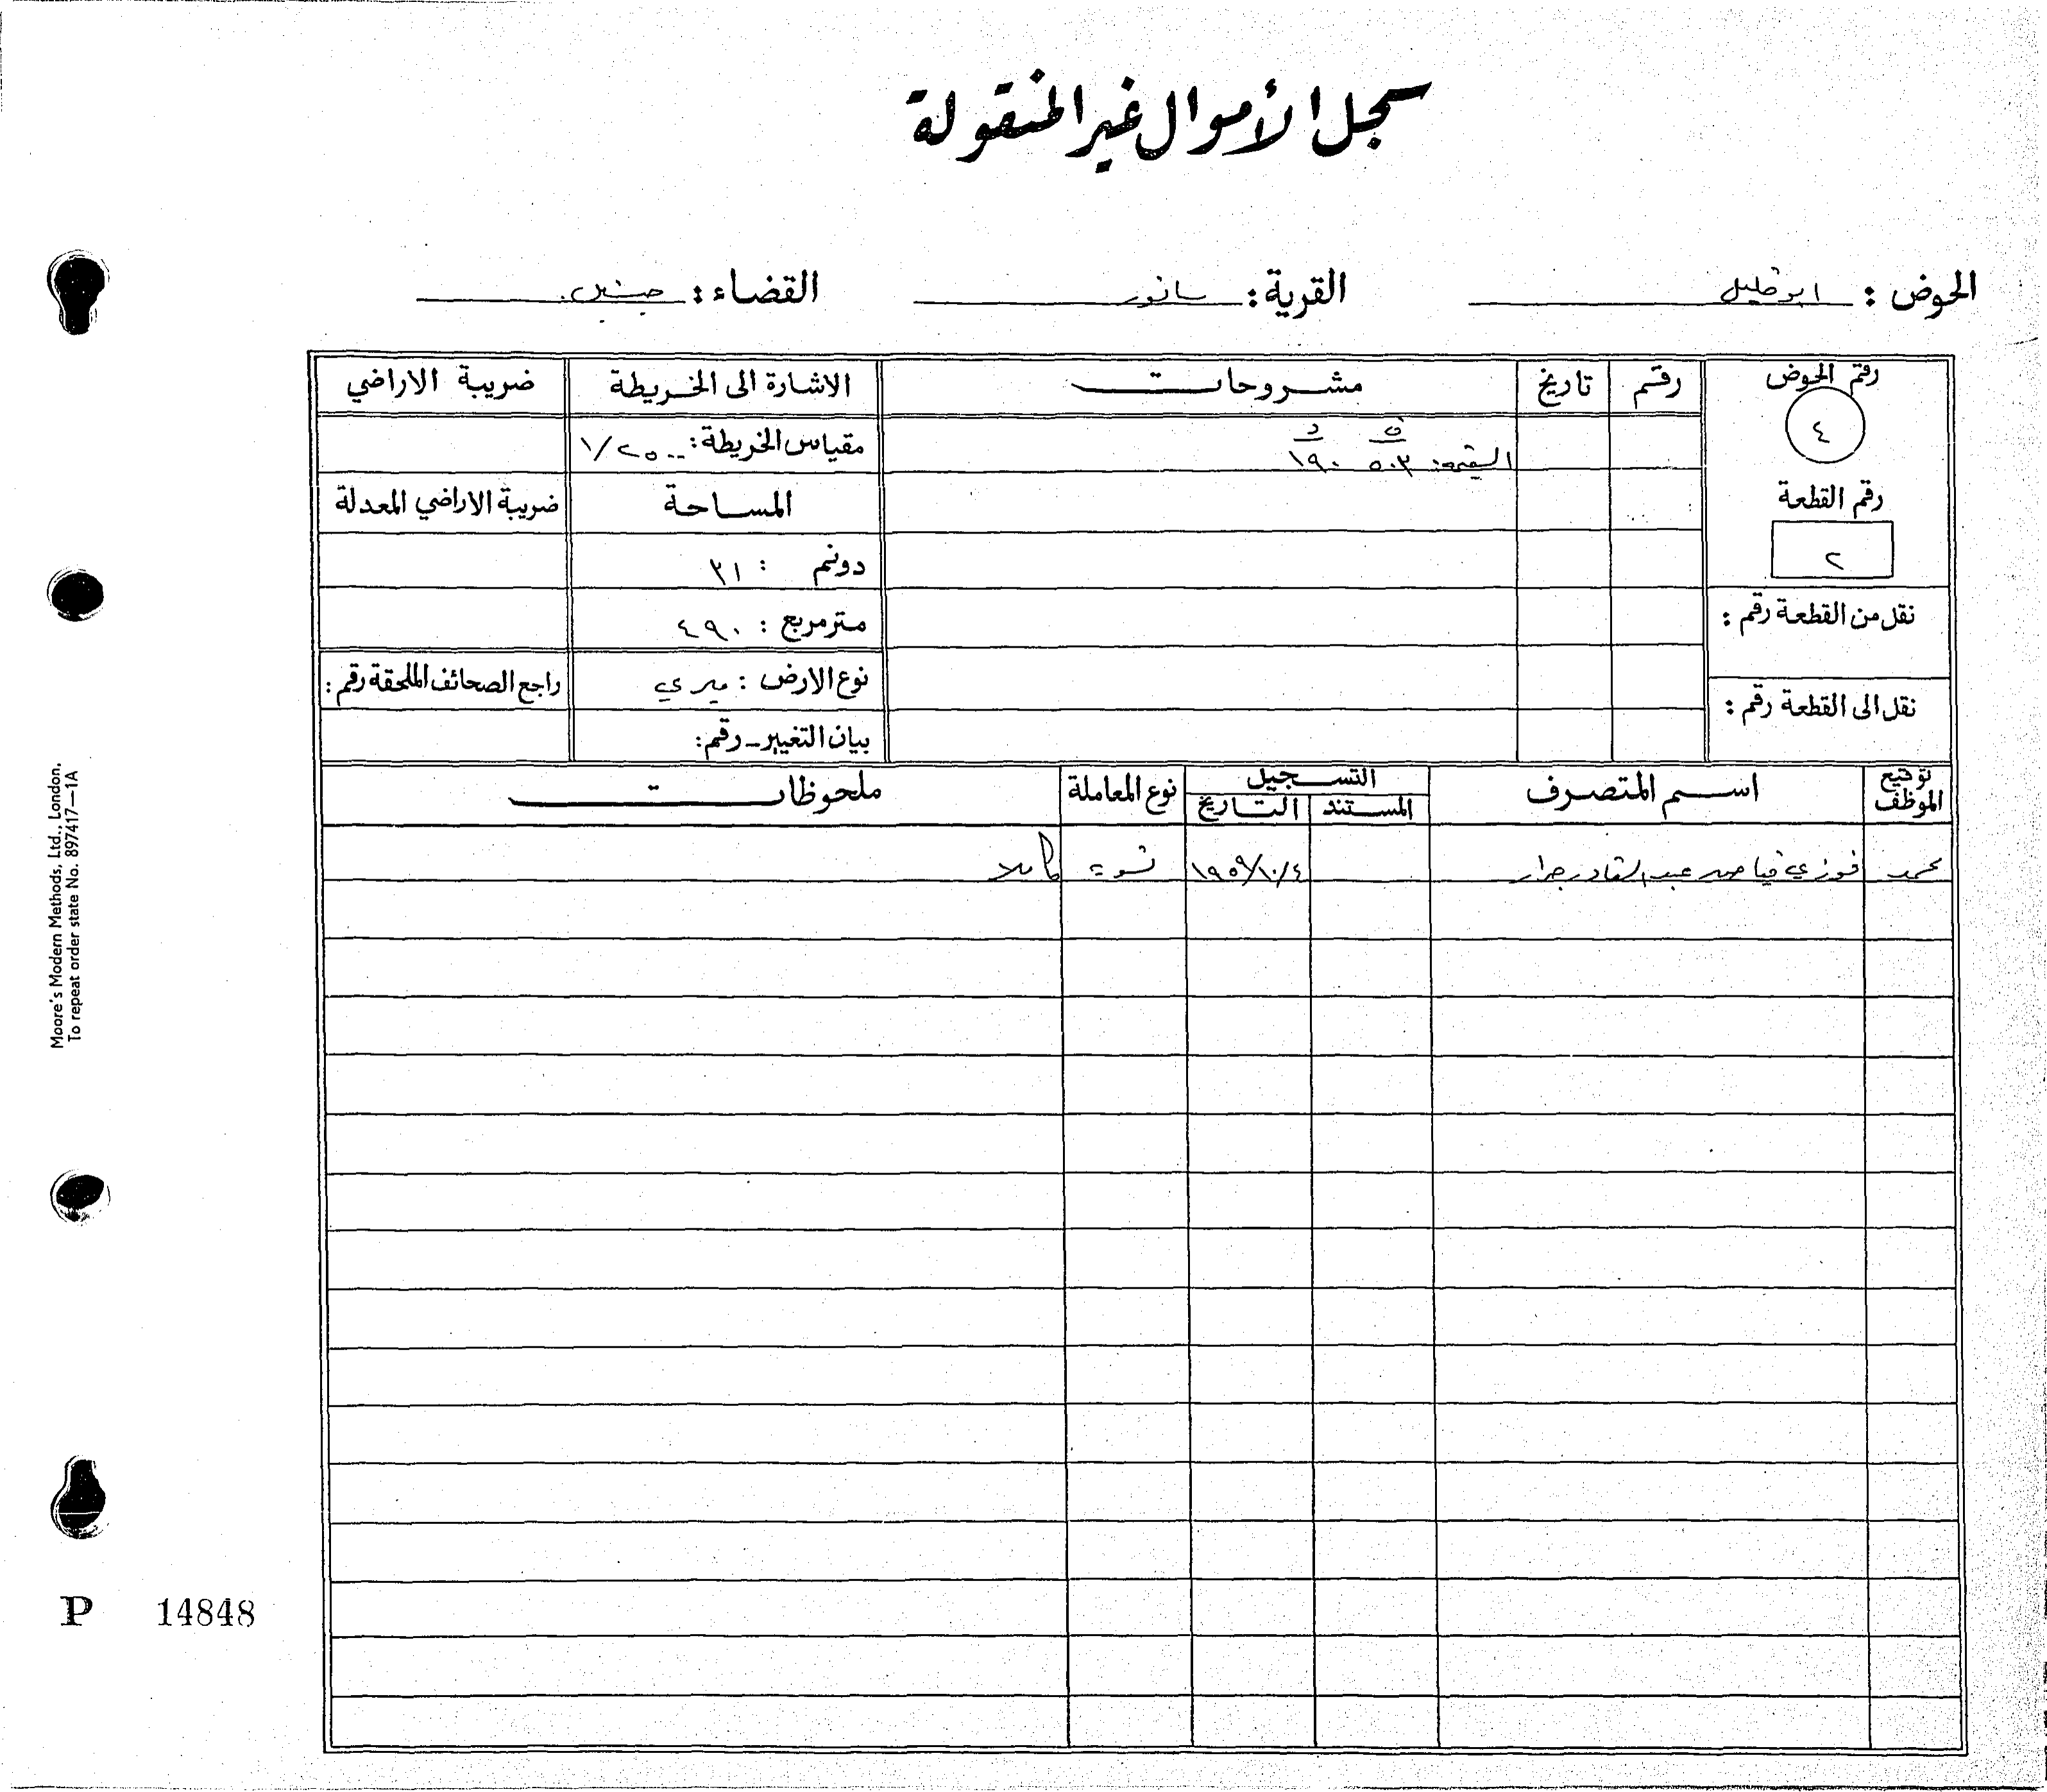 سجل الأموال غير المنقولة
الحوض : ابو خليل القرية : سانور القضاء : جنين
رقم الحوض رقم تاريخ مشروحات الاشارة الى الخريطة ضريبة الاراضي
٤
ف د
القيمة: ٥٠٣ ١٩٠ مقياس الخريطة: ١/٢٥٠٠
رقم القطعة المساحة ضريبة الاراضي المعدلة
٢ دونم : ٣١
نقل من القطعة رقم : متر مربع : ٤٩٠
نوع الارض : ميري راجع الصحائف الملحقة رقم :
نقل الى القطعة رقم : بيان التغيير - رقم:
توقيع الموظف اسم المتصرف التسجيل نوع المعاملة ملحوظات
المستند التاريخ
محمد فوزي عبد القادر جرار ١٩٥٩/١٠/٤ تسوية كاملا
Moore's Modern Methods, Ltd., London.
To repeat order state No. 897417—1A
P 14848